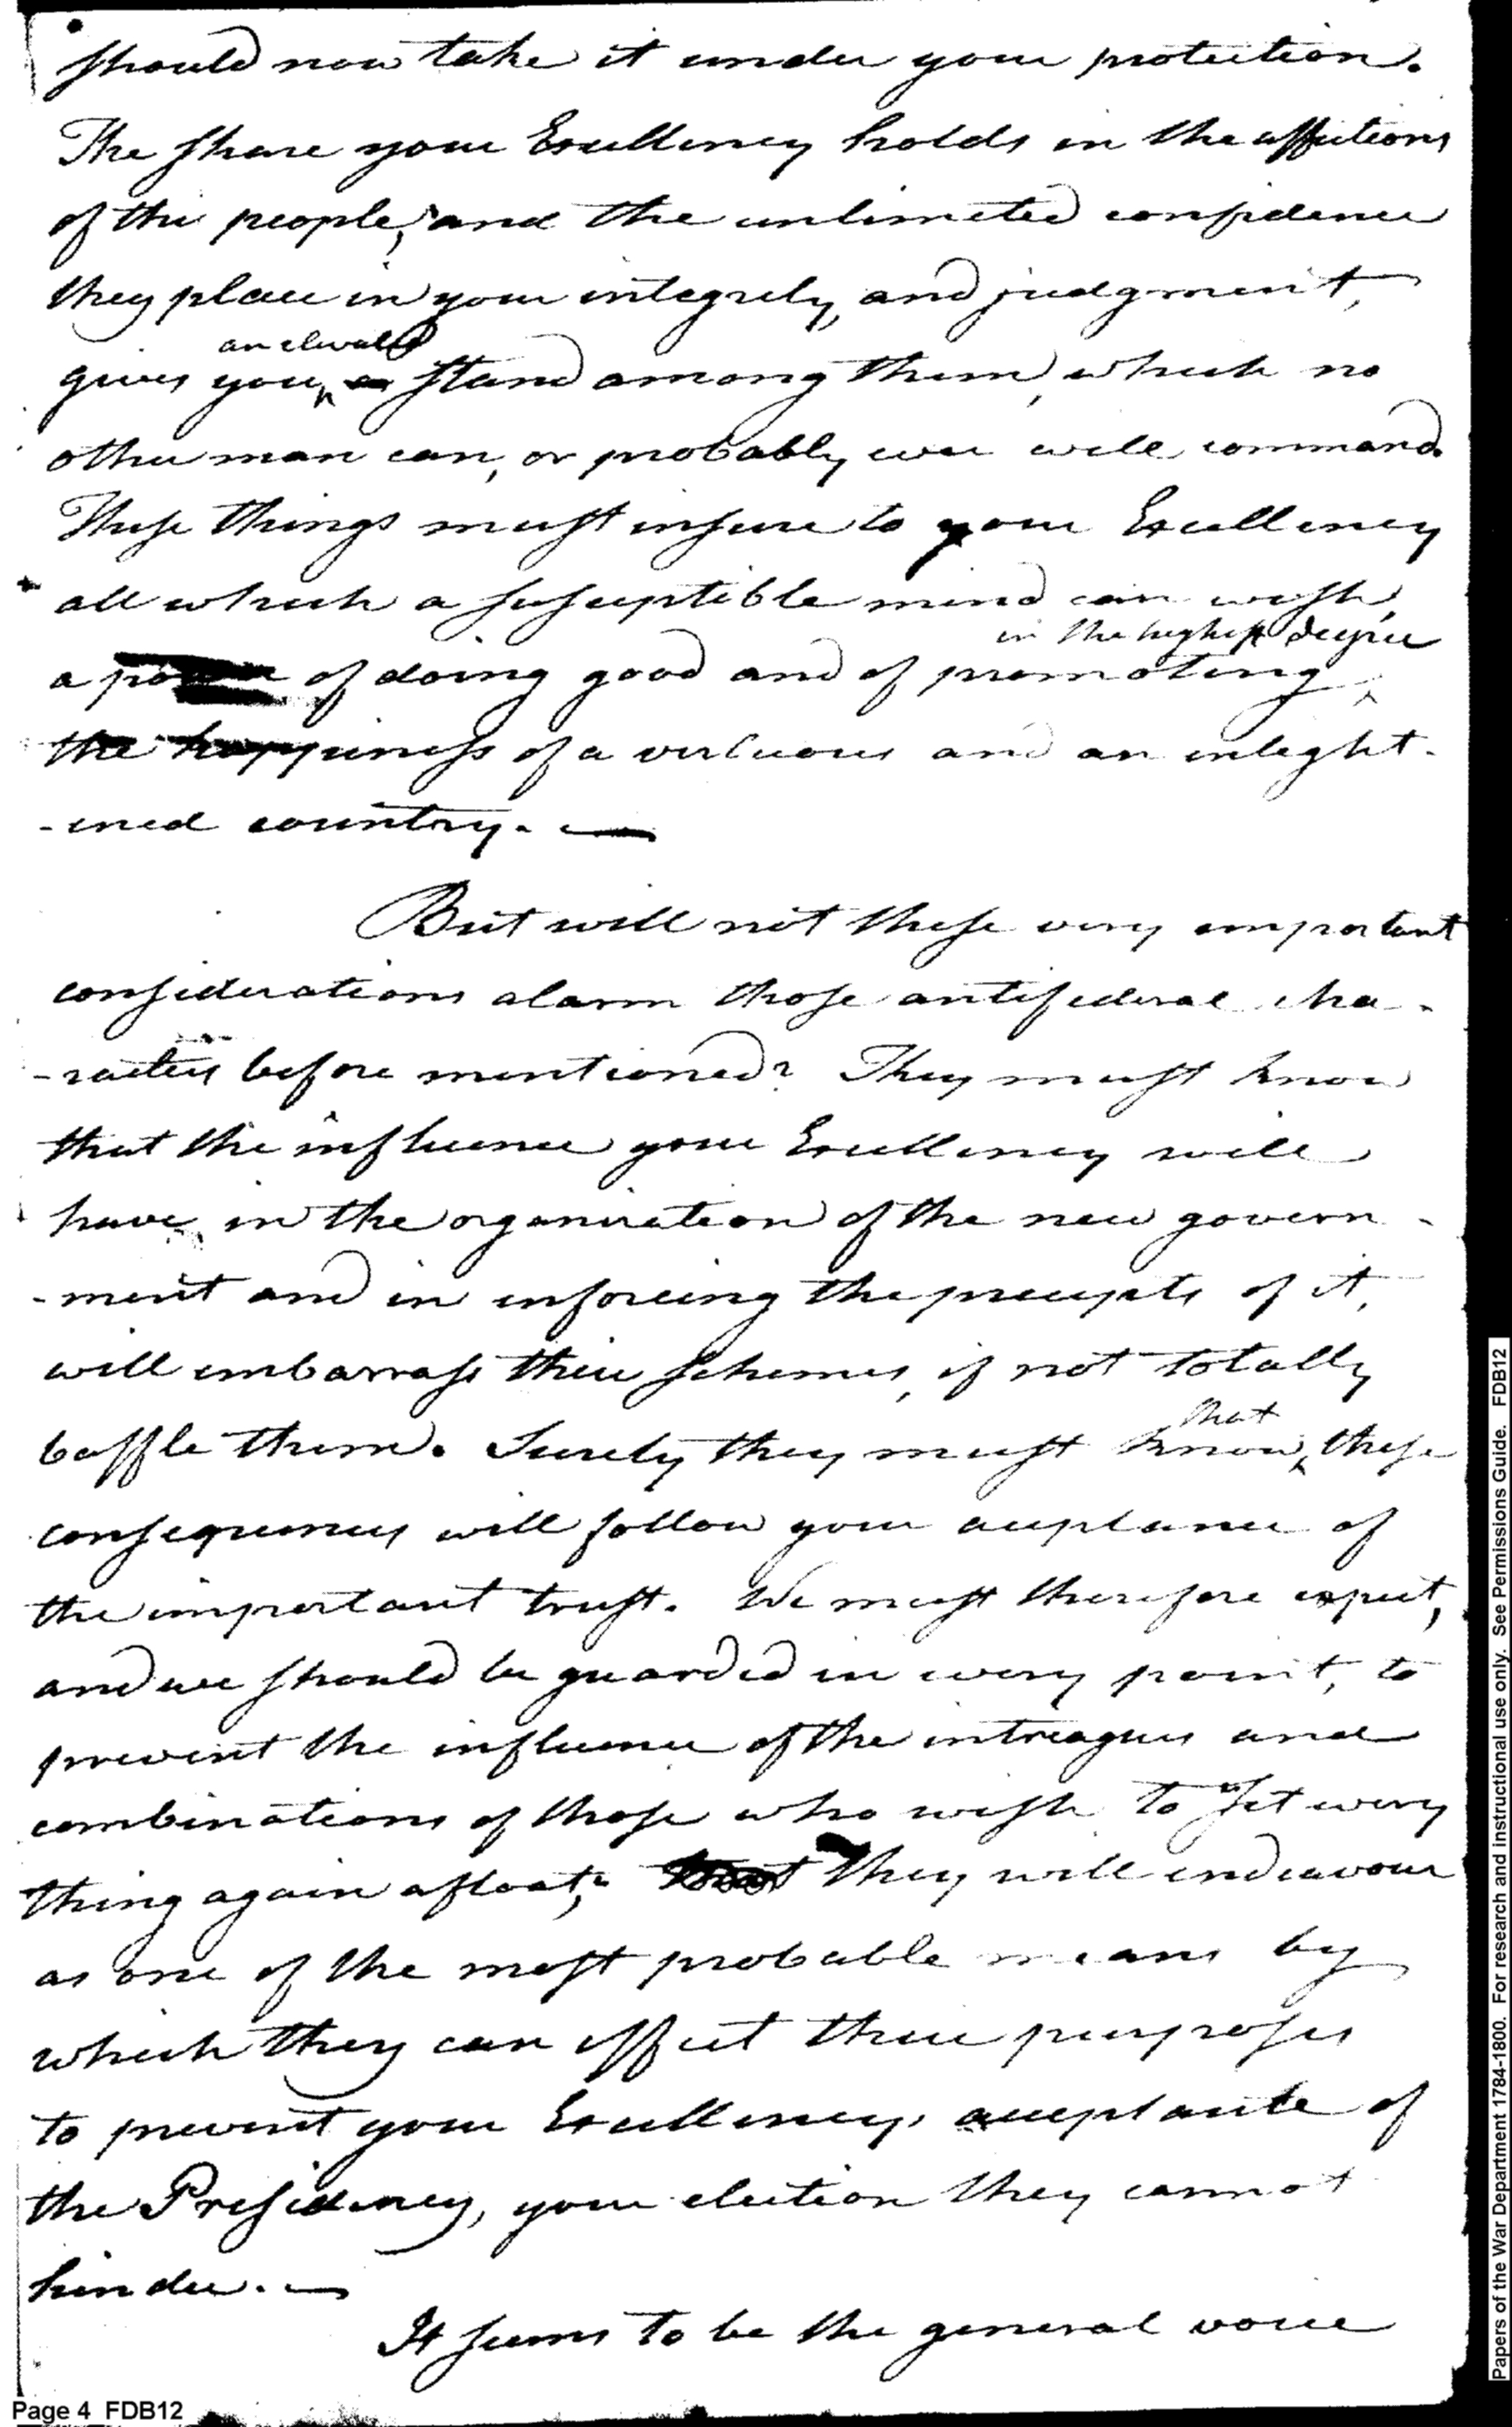 should now take it under your protection.
The share your Excellency holds in the affections
of the people, and the unlimited confidence
they place in your integrity, and judgment,
an elvated
gives you, a stand among them, which no
other man can, or probably ever will command.
These things must insure to your Excellency
all which a susceptible mind can wish,
in the highest degree
a power of doing good and of promoting
the happiness of a virtuous and an enlight-
-ened country. —
But will not these very important
considerations alarm those antifederal cha-
-racters before mentioned? They must know
that the influence your Excellency will
have, in the organization of the new govern-
-ment and in enforcing the precepts of it,
will embarrass their schemes, if not totally
that
baffle them. Surely they must know, these
consequences will follow your acceptance of
the important trust. We must therefore expect,
and we should be guarded in every point, to
prevent the influence of the intreagues and
combinations of those who wish to set every
thing again afloat; that they will endeavour
as one of the most probable means by
which they can effect their purposes
to prevent your Excellency, acceptance of
the Presidency, your election they cannot
hinder. —
It seems to be the general voice
Page 4 FDB12
Papers of the War Department 1784-1800. For research and instructional use only. See Permissions Guide. FDB12